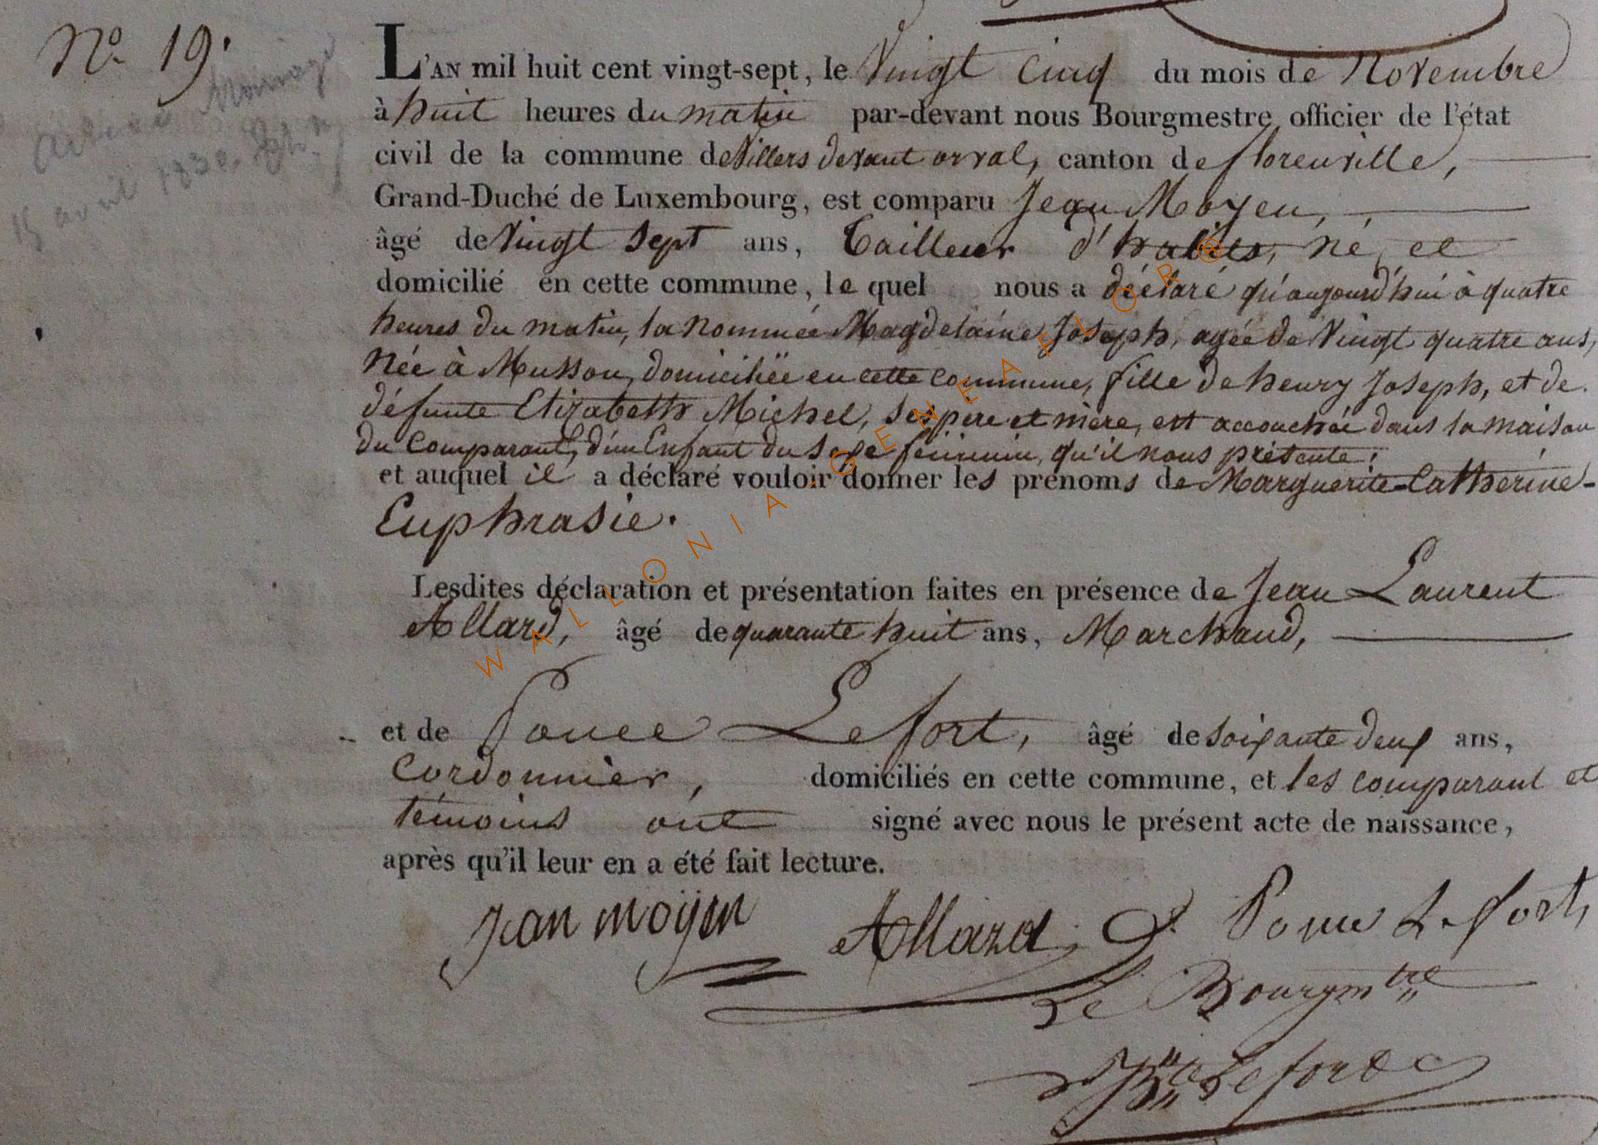 N.o 19.
mariage
15 avril 1830.
L'AN mil huit cent vingt-sept, le Vingt Cinq du mois de Novembre
à huit heures du matin par-devant nous Bourgmestre officier de l'état
civil de la commune de Villers devant orval, canton de florenville,
Grand-Duché de Luxembourg, est comparu Jean Moyen,
âgé de Vingt Sept ans, Tailleur d'habits, né, et
domicilié en cette commune, le quel nous a déclaré qu'aujourd'hui à quatre
heures du matin, la nommée Magdelaine Joseph, agée de Vingt quatre ans,
Née à Musson, domiciliëe en cette commune, fille de henry Joseph, et de
défunte Elizabeth Michel, ses pere et mère, est accouchée dans la maison
du Comparant, d'un Enfant du sexe féminin, qu'il nous présente;
et auquel il a déclaré vouloir donner les prénoms de Marguerite-Catherine-
Euphrasie.
Lesdites déclaration et présentation faites en présence de Jean Laurent
Allard, âgé de quarante huit ans, Marchand,
et de Ponce Lefort, âgé de soixante deux ans,
Cordonnier, domiciliés en cette commune, et les comparant et
témoins ont signé avec nous le présent acte de naissance,
après qu'il leur en a été fait lecture.
jean moyen Allard Ponce Lefort,
Le Bourgmtre
Lefort
WALLONIA GENEALOR ®